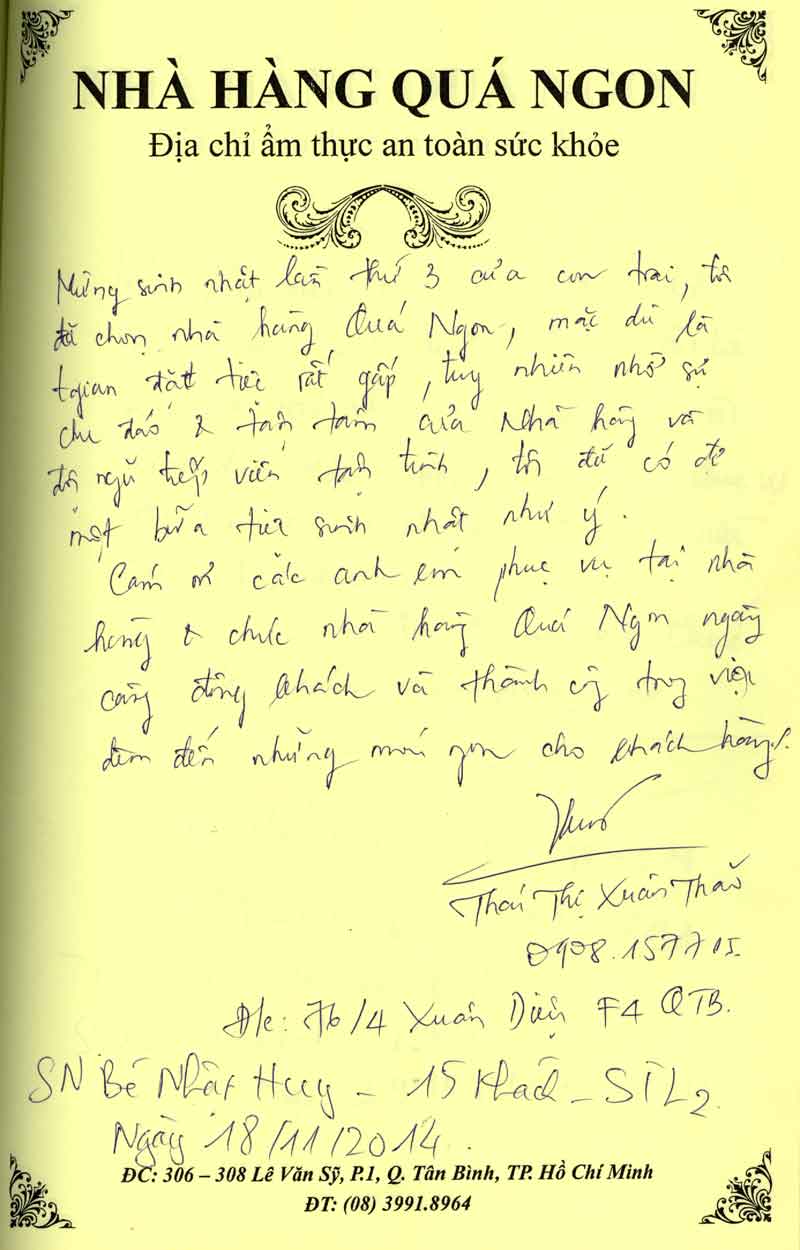 NHÀ HÀNG QUÁ NGON
Địa chỉ ẩm thực an toàn sức khỏe
Mừng sinh nhật lần thứ 3 của con trai, tôi
đã chọn nhà hàng Quá Ngon, mặc dù là
tgian đặt tiệc rất gấp, tuy nhiên nhờ sự
chu đáo & tận tâm của Nhà hàng và
đội ngũ tiếp viên tận tình, tôi đã có được
một bữa tiệc sinh nhật như ý.
Cám ơn các anh em phục vụ tại nhà
hàng & chúc nhà hàng Quá Ngon ngày
càng đông khách và thành công trong việc
đem đến những món ngon cho khách hàng/.
Thái Thị Xuân Thảo
0908.157715
Đ/c: 76/4 Xuân Diệu F4 QTB.
SN Bé Nhật Huy - 15 khách - STL2
Ngày 18/11/2014.
ĐC: 306 – 308 Lê Văn Sỹ, P.1, Q. Tân Bình, TP. Hồ Chí Minh
ĐT: (08) 3991.8964